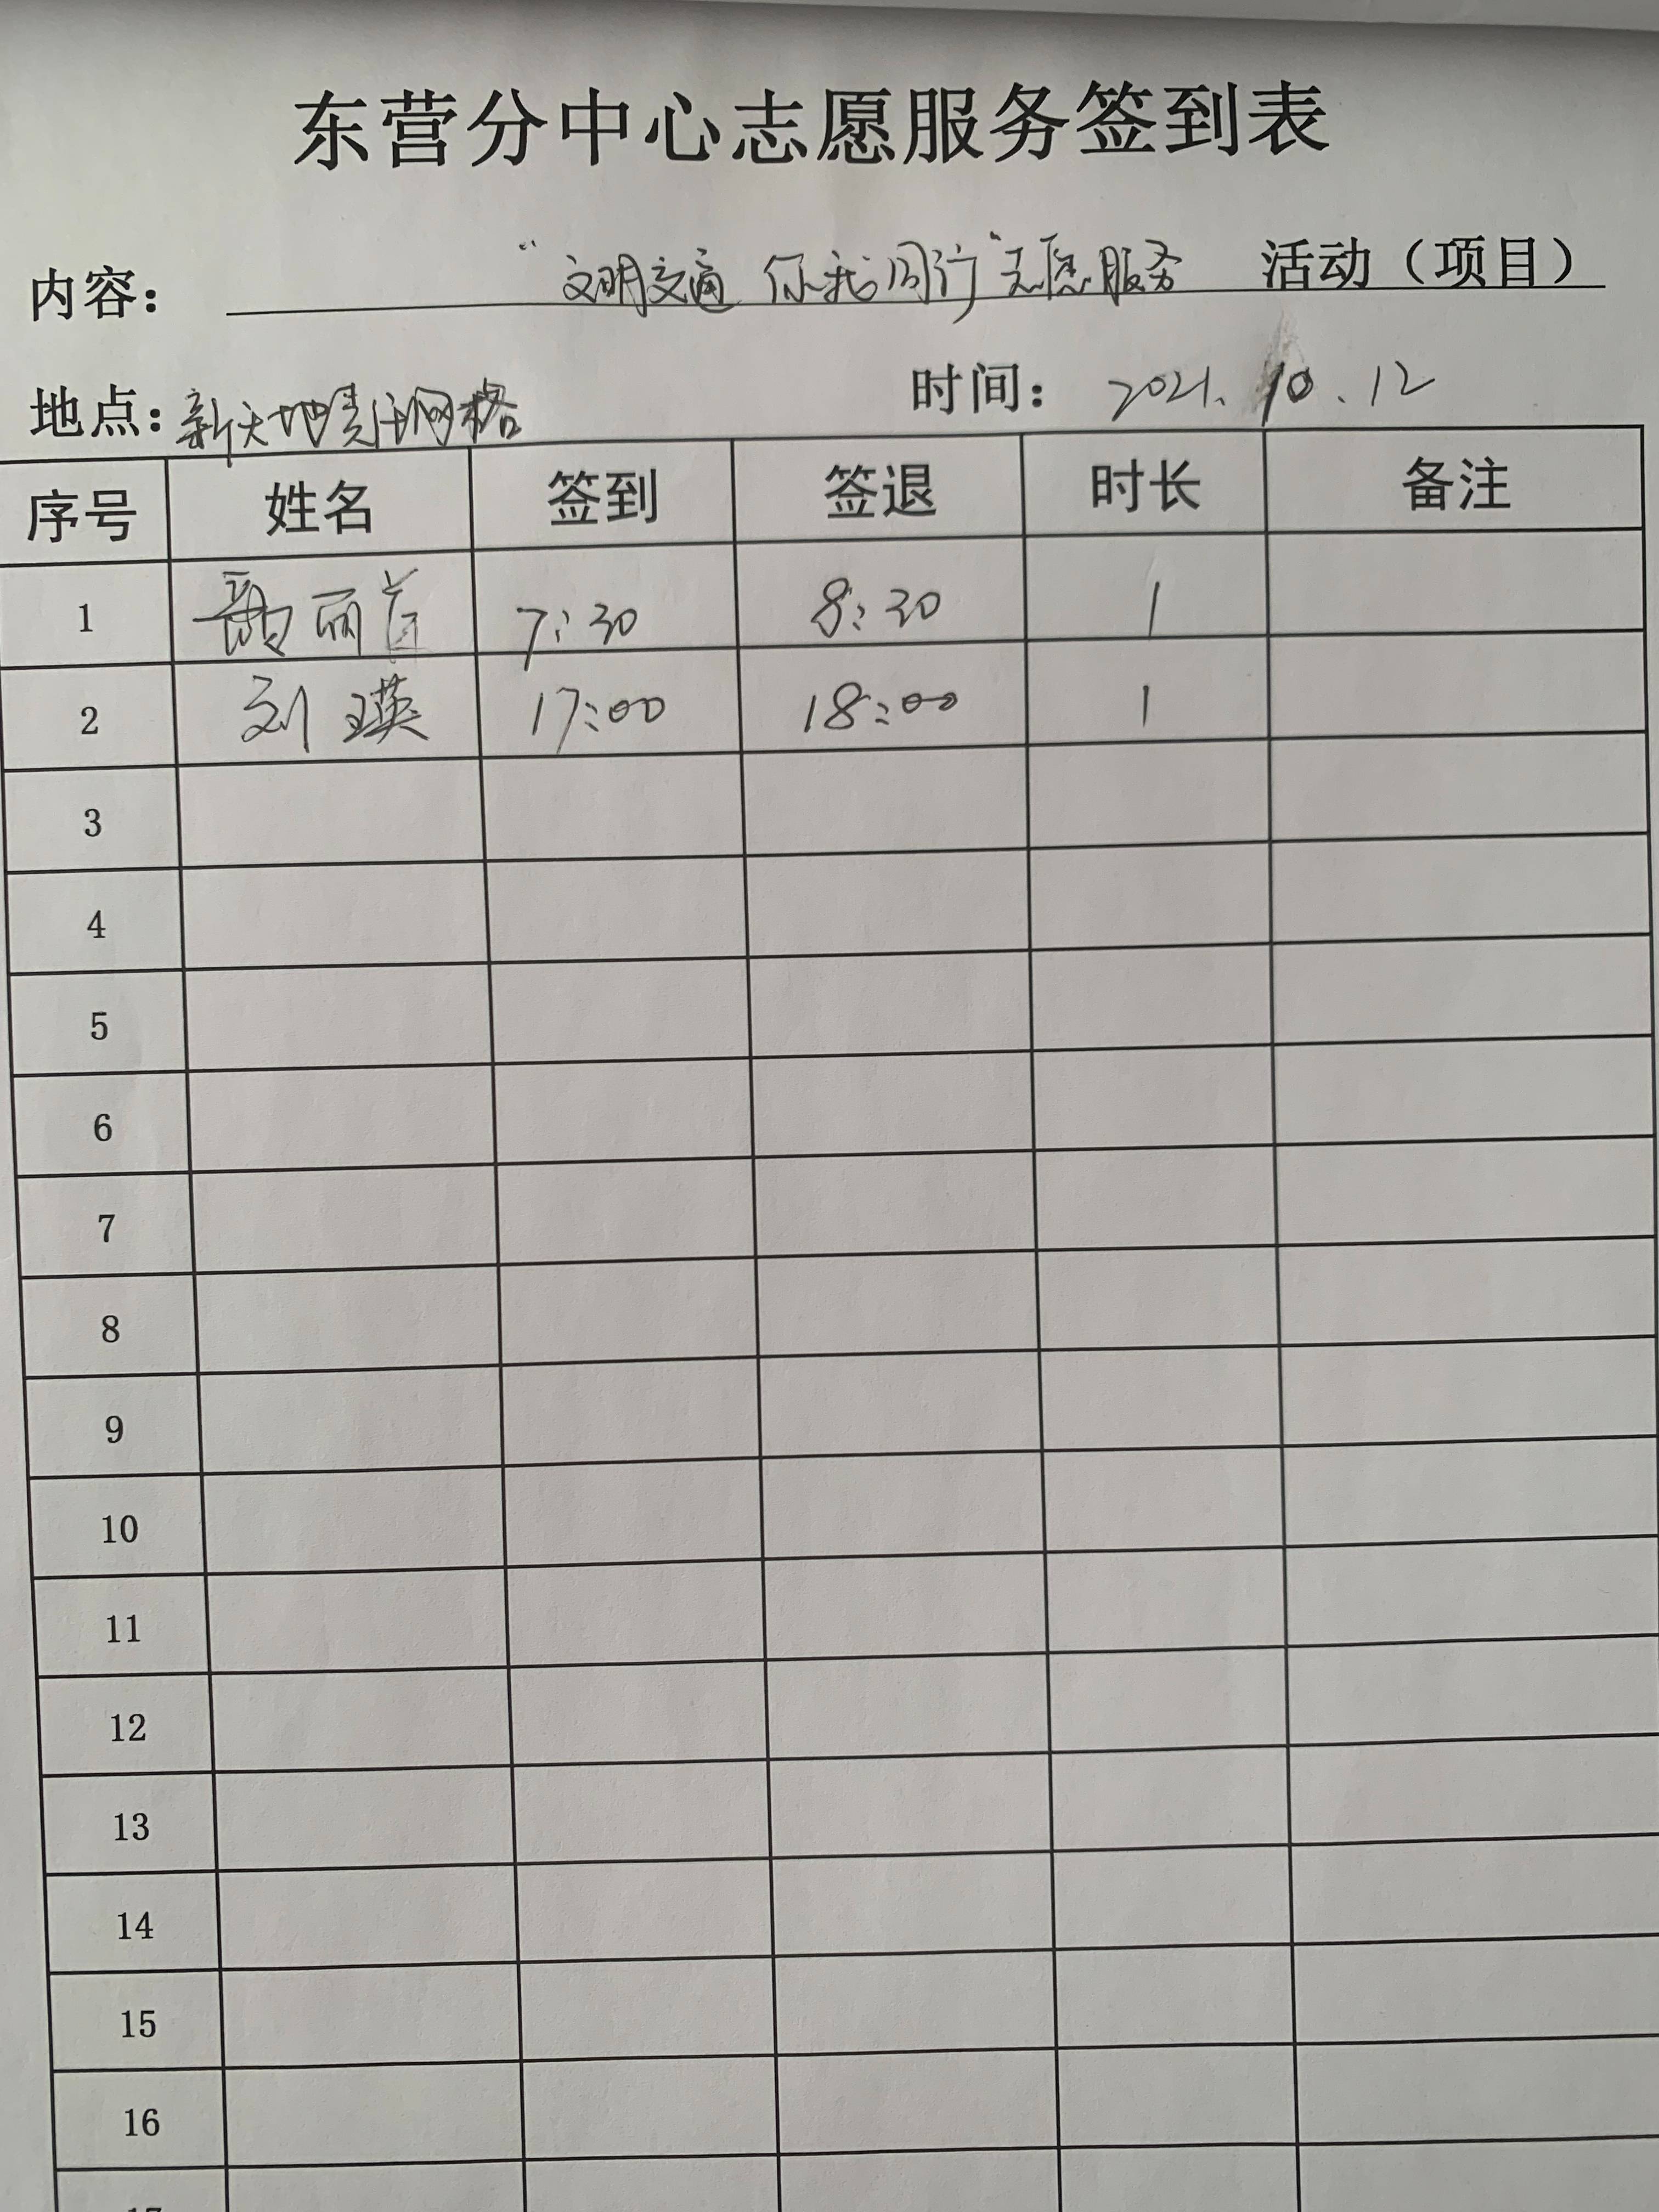 东营分中心志愿服务签到表
内容： “文明交通 你我同行”志愿服务 活动（项目）
地点：新天地责任网格 时间： 2021. 10 . 12
序号 姓名 签到 签退 时长 备注
1 丽 7:30 8:30 1
2 刘瑛 17:00 18:00 1
3
4
5
6
7
8
9
10
11
12
13
14
15
16
17